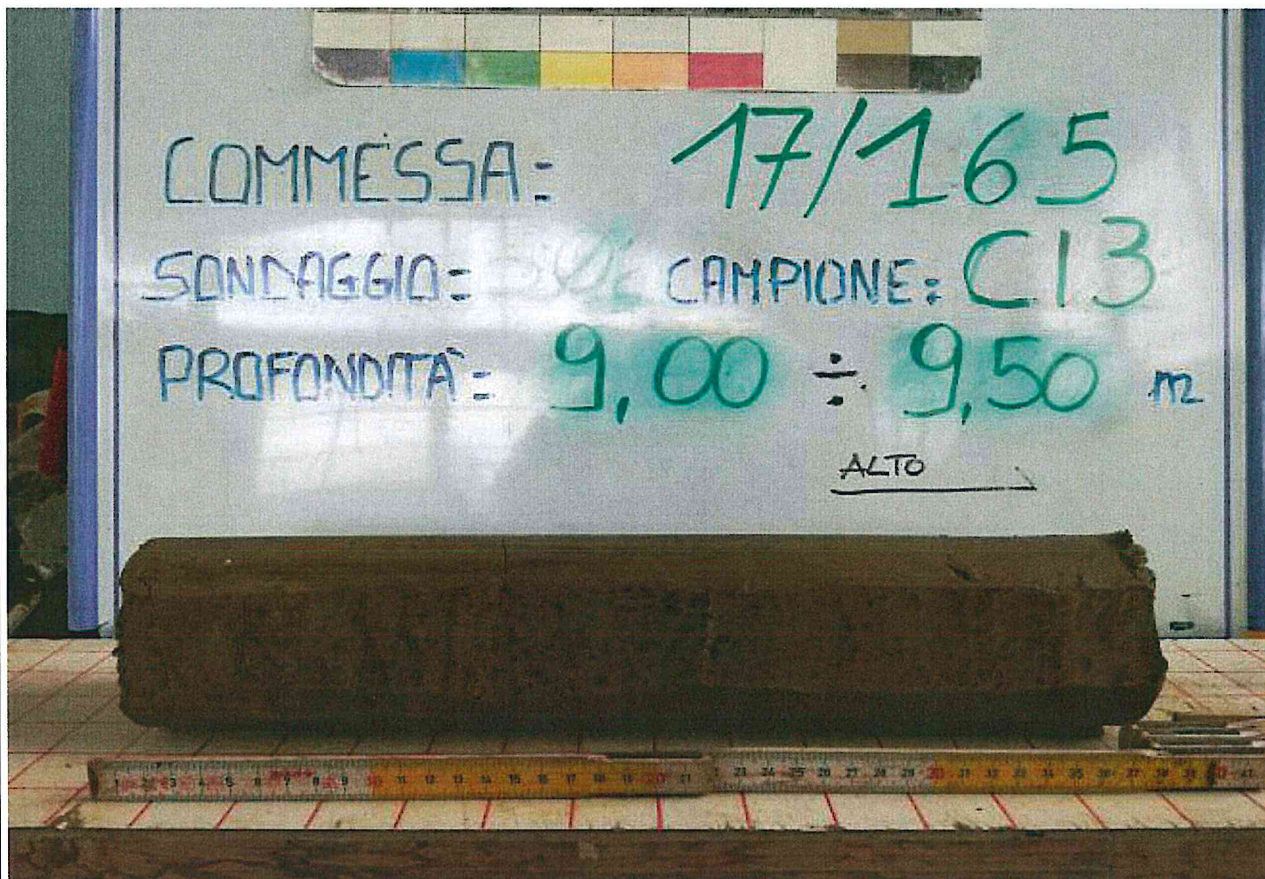 COMMESSA: 17/165
SONDAGGIO: CAMPIONE: CI3
PROFONDITÀ: 9,00 ÷ 9,50 m
ALTO
1 2 3 4 5 6 7 8 9 10 11 12 13 14 15 16 17 18 19 20 21 23 24 25 26 27 28 29 30 31 32 33 34 35 36 37 38 39 40 41